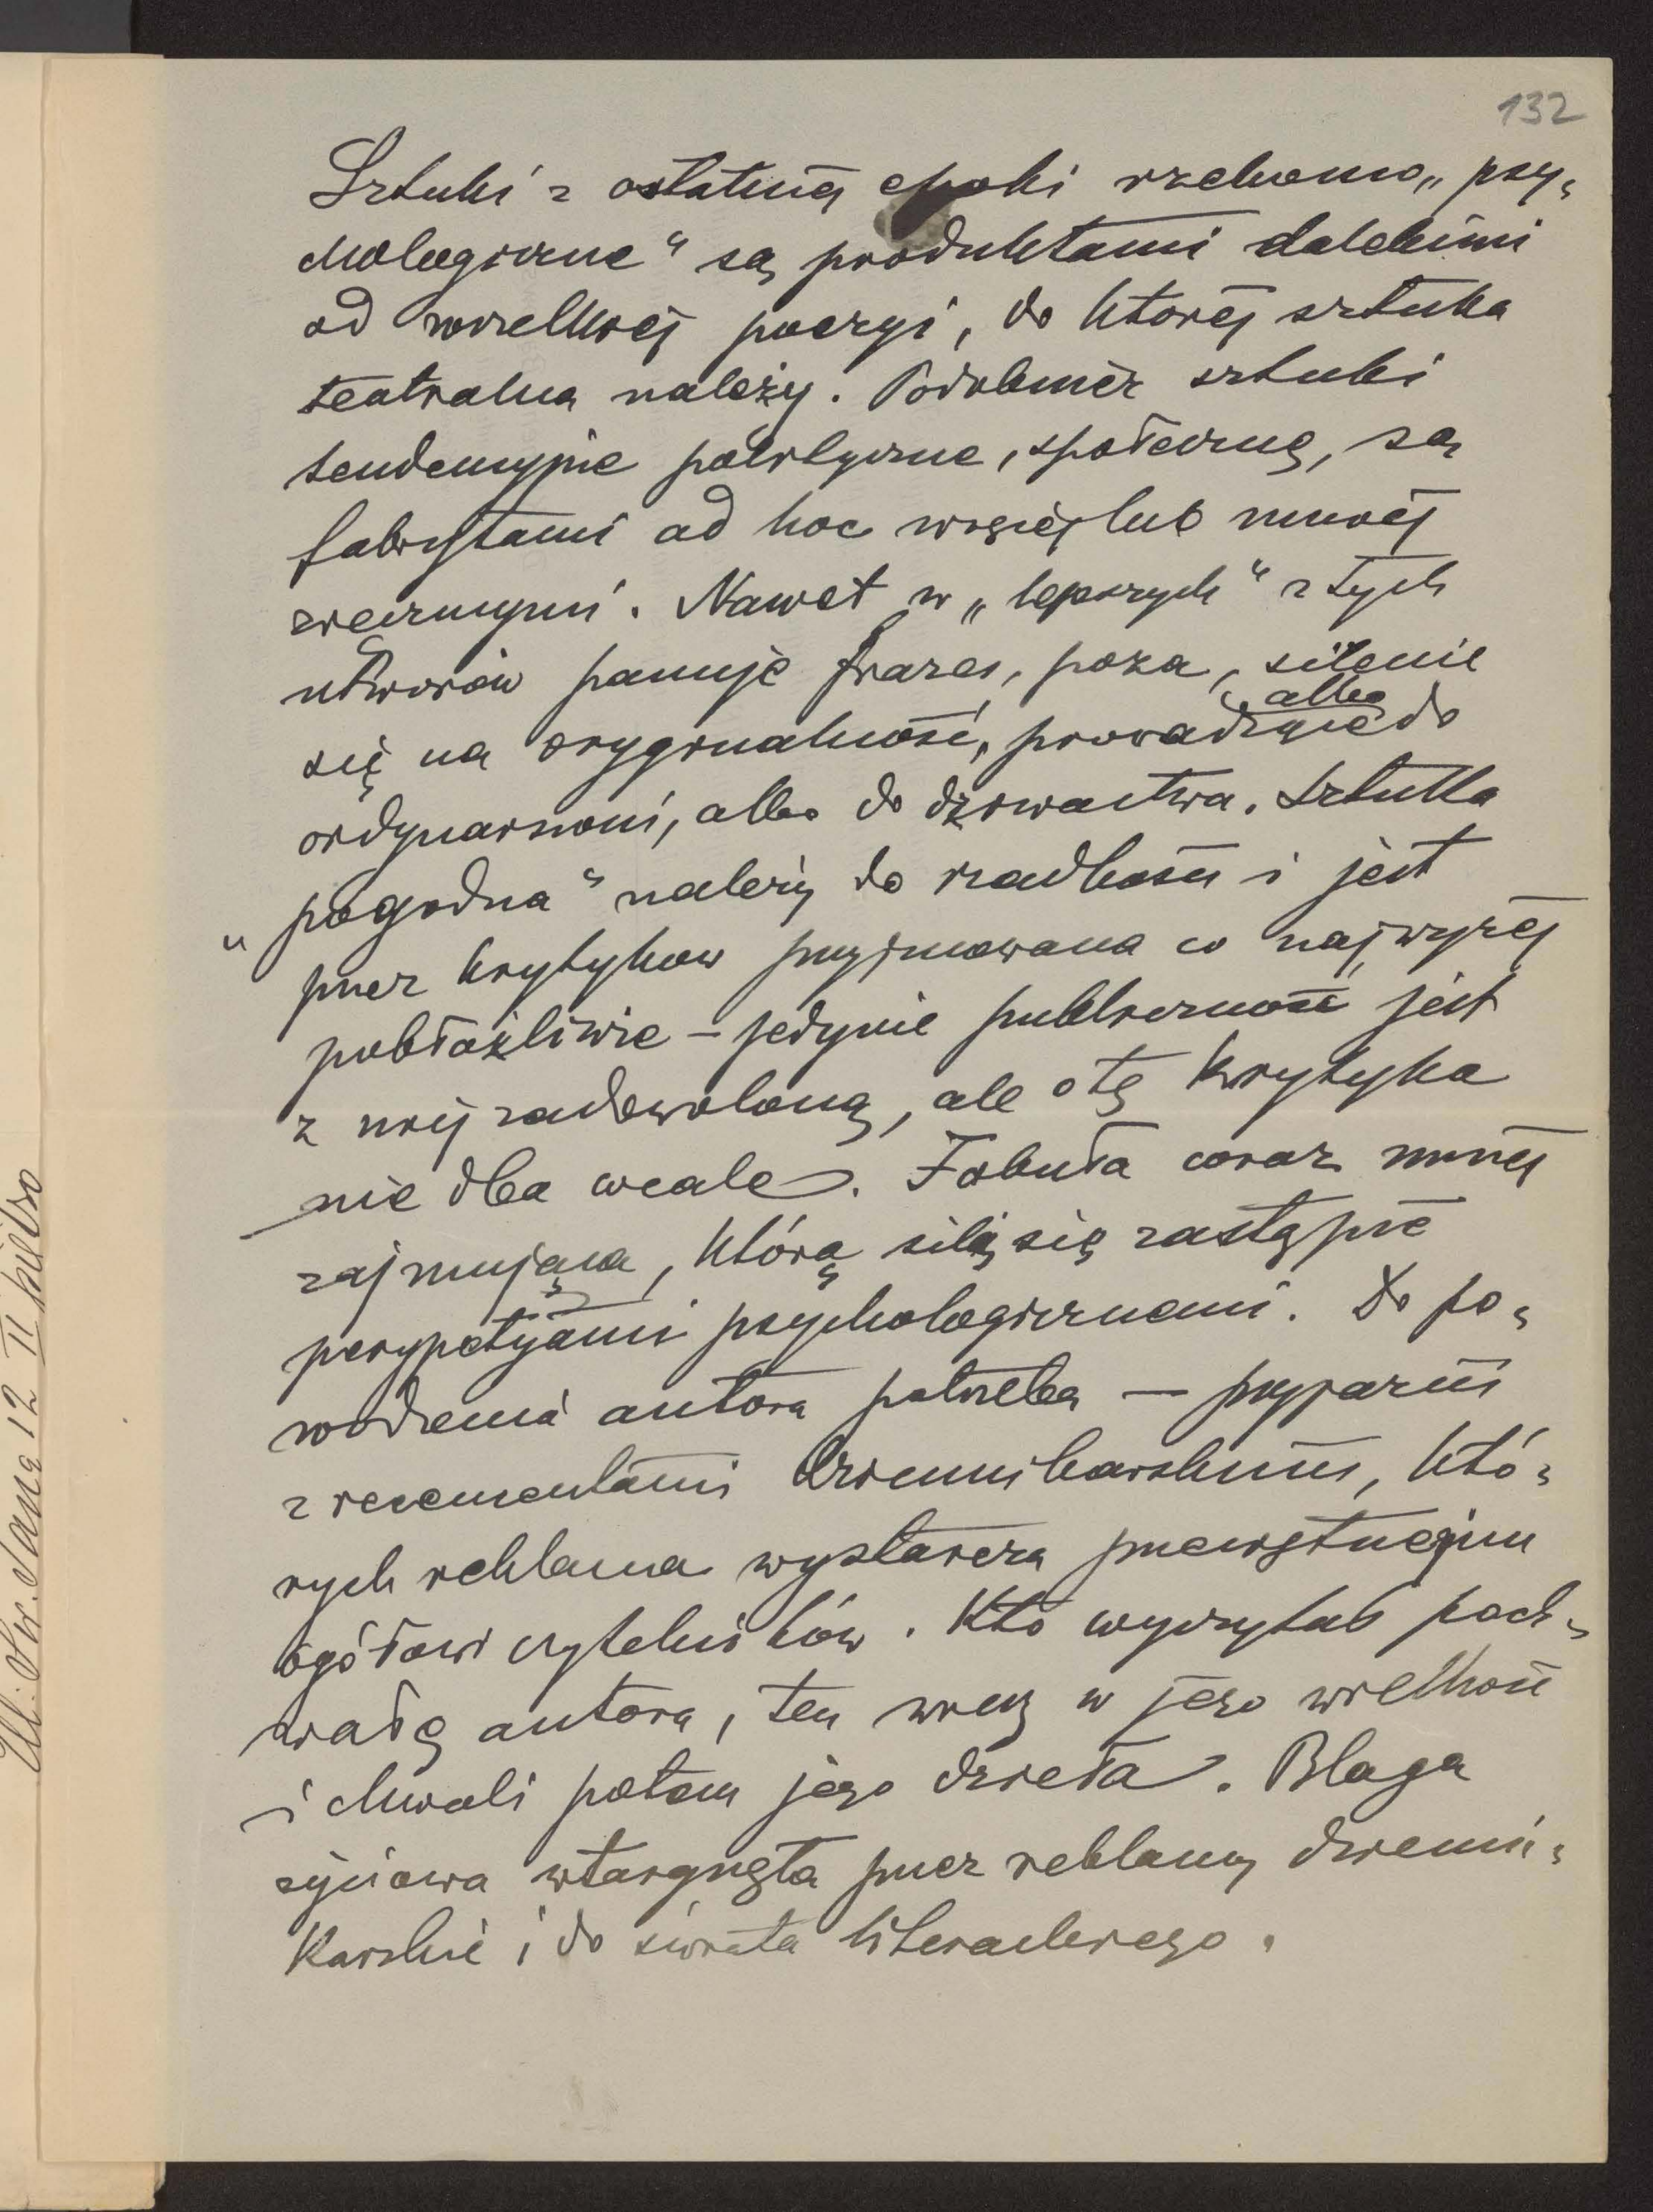 132
Sztuki z ostatniej epoki rzekomo „psy-
chologiczne“ są produktami dalekimi
od wielkiej poezyi, do ktorej sztuka
teatralna należy. Podobnież sztuki
tendencyjnie polityczne, społeczne, są
fabrykatami ad hoc więcej lub mniej
zręcznymi. Nawet w „lepszych“ z tych
utworów panuje frazes, poza, silenie
się na oryginalność, prowadzące albo do
ordynarności, albo do dziwactwa. Sztuka
„pogodna“ należy do rzadkości i jest
przez krytykow przyjmowana co najwyżej
pobłażliwie – jedynie publiczność jest
z niej zadowoloną, ale o tę krytyka
nie dba wcale. Fabuła coraz mniej
zajmująca, którą silą się zastąpić
perypetyjami psychologicznemi. Do po-
wodzenia autora potrzeba — przyjaźni
z recenzentami dziennikarskimi, któ-
rych reklama wystarcza przeciętnejmu
ogółowi czytelników. Kto wyczytał poch-
wałę autora, ten wierzy w jego wielkość
i chwali potem jego dzieła. Blaga
życiowa wtargnęła przez reklamy dzienni-
karskie i do świata literackiego.
Ul. Św. Jana 12 II piętro